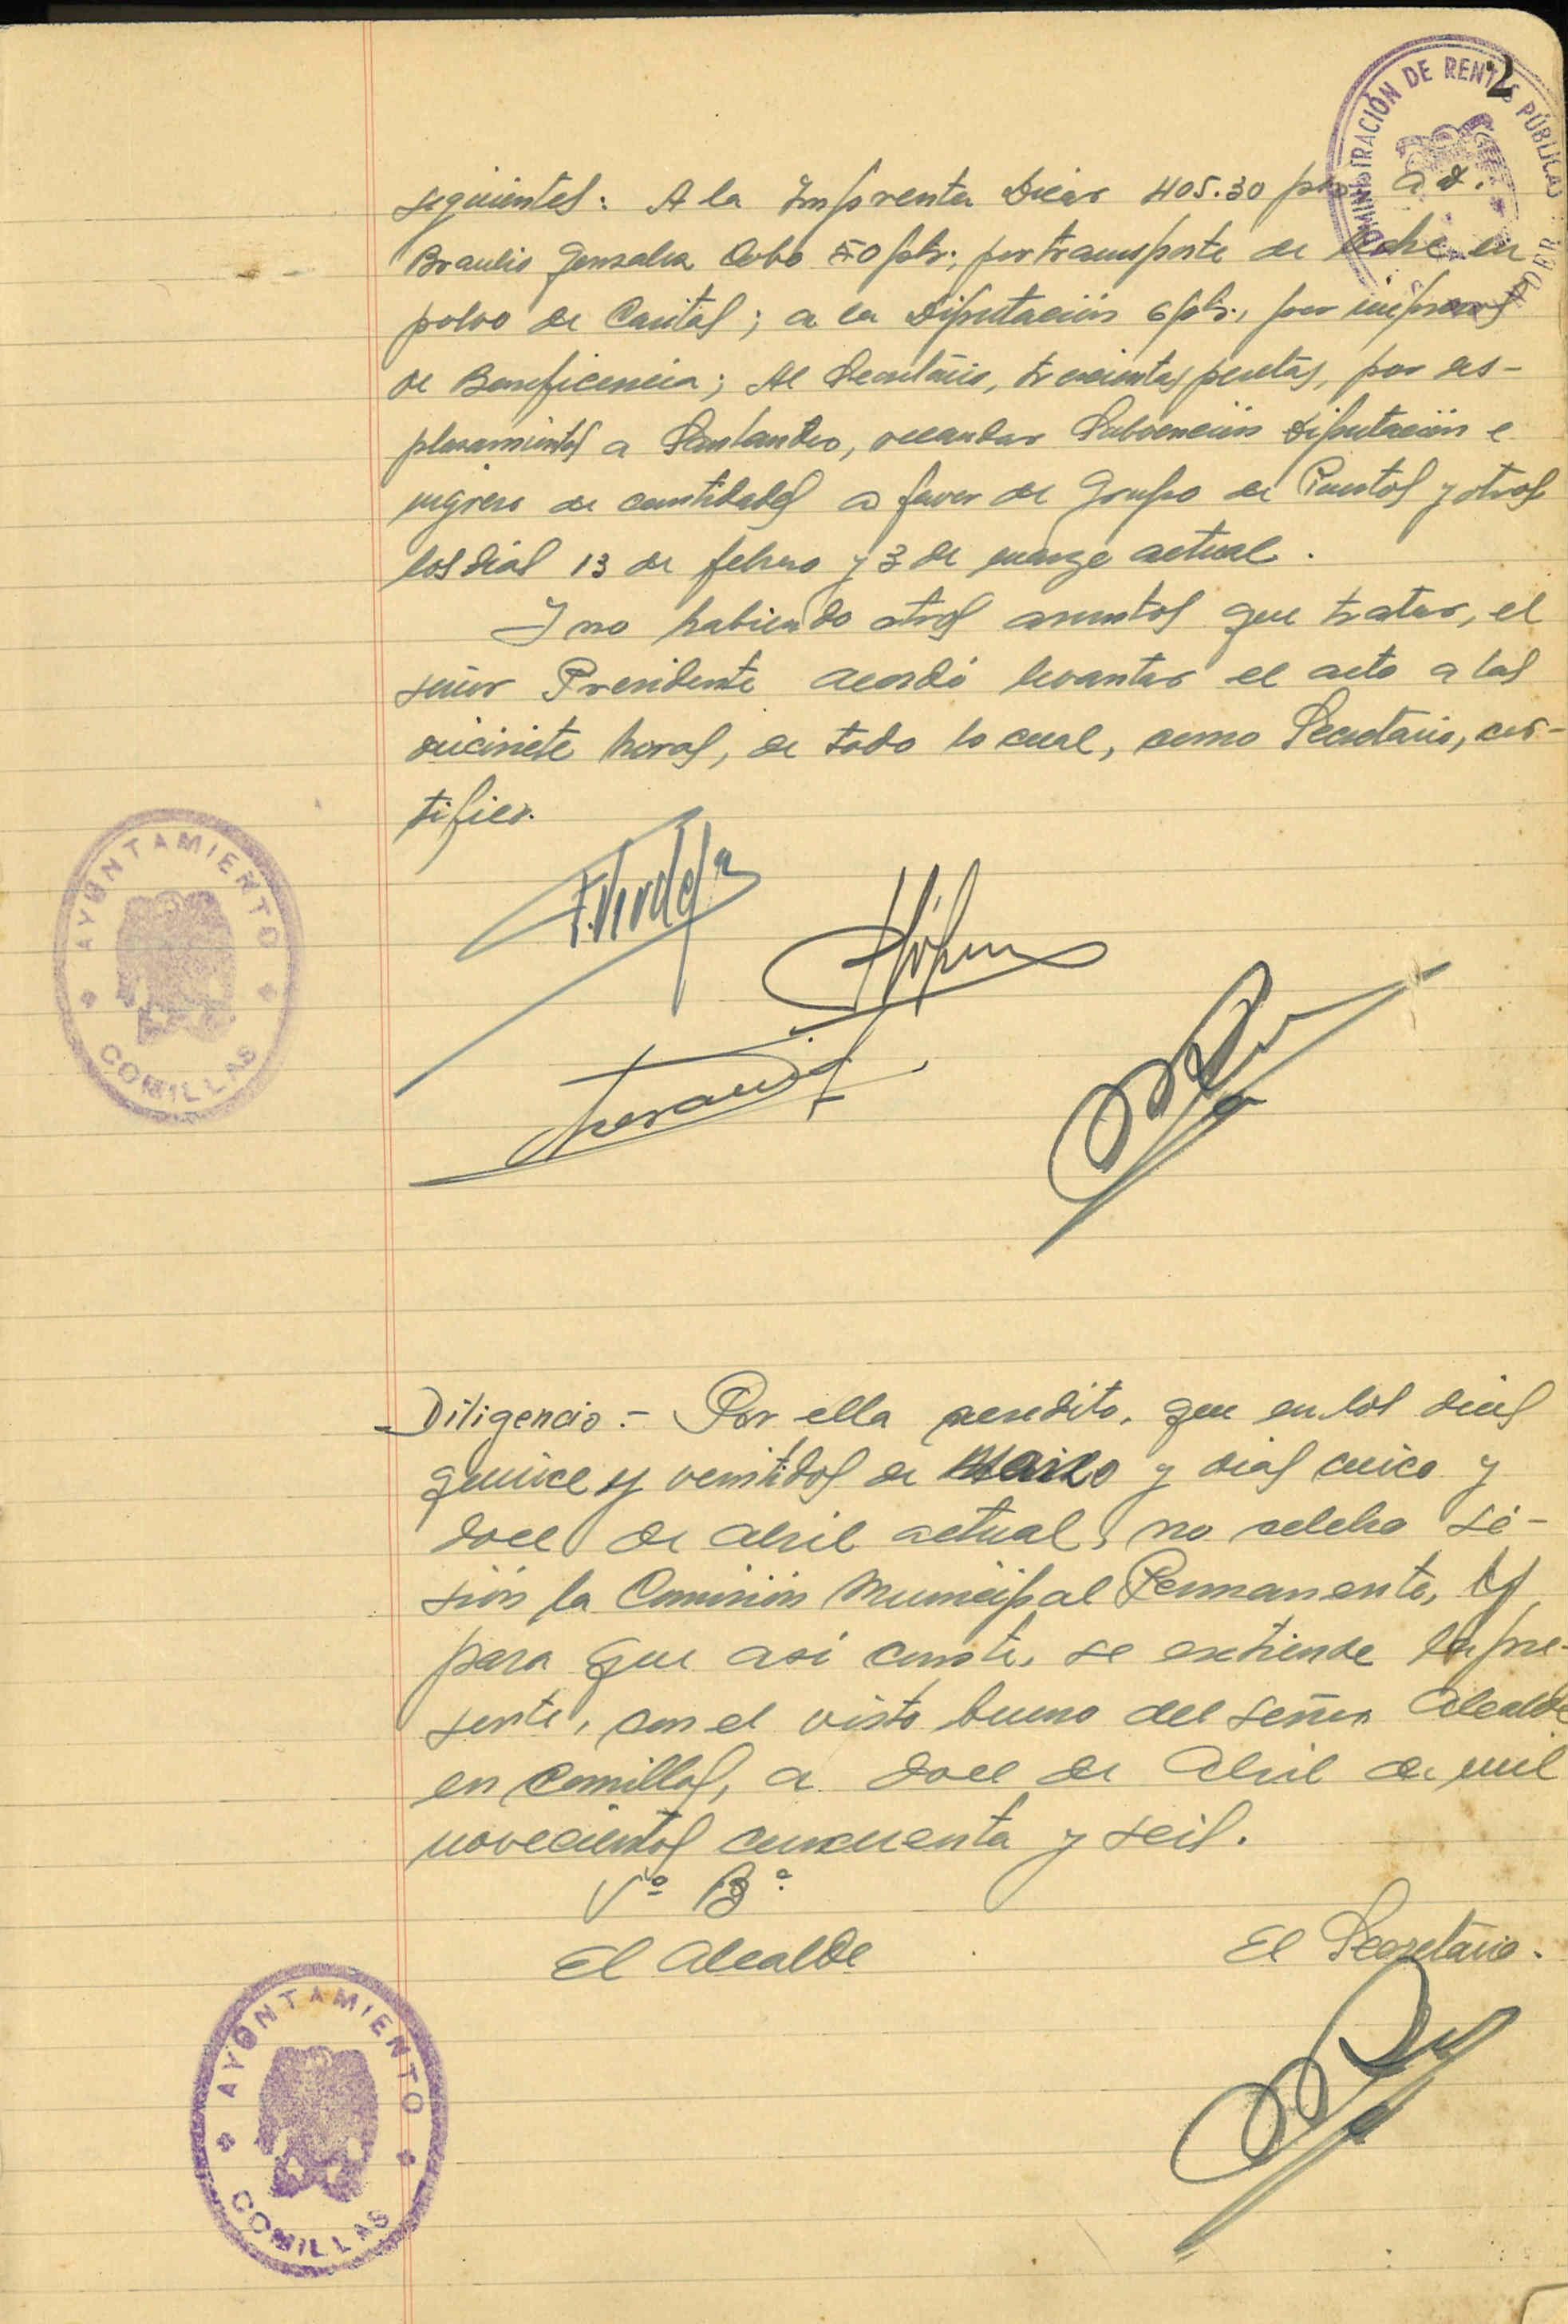 2
ADMINISTRACIÓN DE RENTAS PÚBLICAS
siguientes: A la Imprenta 405.30 pts; a d.
Braulio Gonzalez Cobo 50 pts; por transporte de leche en
polvo de Caritas; a la Diputación 6 pts., por impresos
de Beneficencia; Al Secretario, trescientas pesetas, por des-
plazamientos a Santander, recaudar Subvención Diputación e
ingreso de cantidades a favor de Grupo de Puertos y otros
los dias 13 de febrero y 3 de marzo actual.
Y no habiendo otros asuntos que tratar, el
señor Presidente acordó levantar el acto a las
diecisiete horas, de todo lo cual, como Secretario, cer-
tifico.
AYUNTAMIENTO
COMILLAS
Diligencia.- Por ella acredito, que en los dias
quince y veintidos de Marzo y dias cinco y
doce de abril actual, no celebro se-
sión la Comisión Municipal Permanente, Y
para que así conste, se extiende la pre-
sente, con el visto bueno del señor Alcalde
en Comillas, a doce de Abril de mil
novecientos cincuenta y seis.
Vº Bº
El Alcalde
El Secretario.
AYUNTAMIENTO
COMILLAS